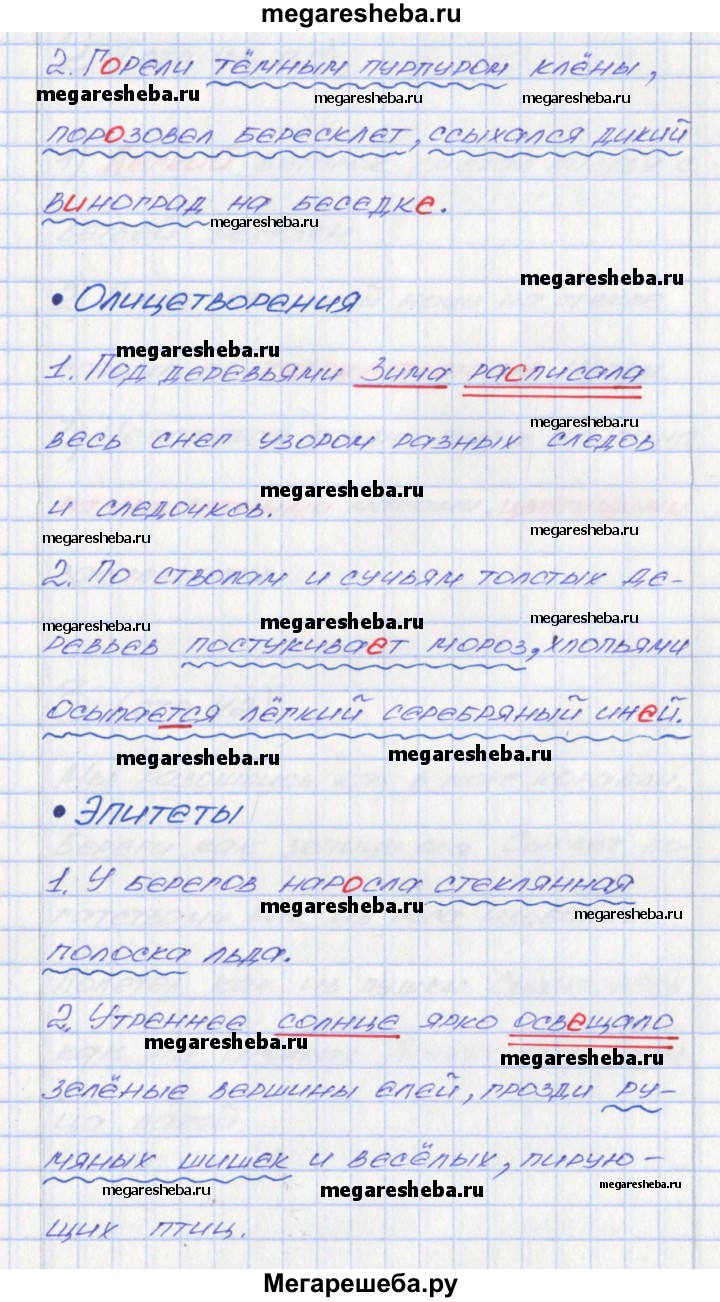 megaresheba.ru
2. Горели тёмным пурпуром клёны,
megaresheba.ru megaresheba.ru megaresheba.ru
порозовел бересклет, ссыхался дикий
виноград на беседке.
megaresheba.ru
megaresheba.ru
• Олицетворения
megaresheba.ru
1. Под деревьями Зима расписала
megaresheba.ru
весь снег узором разных следов
megaresheba.ru
и следочков.
megaresheba.ru megaresheba.ru
2. По стволам и сучьям толстых де-
megaresheba.ru megaresheba.ru megaresheba.ru
ревьев постукивает мороз, хлопьями
осыпается лёгкий серебряный иней.
megaresheba.ru megaresheba.ru
• Эпитеты
1. У берегов наросла стеклянная
megaresheba.ru megaresheba.ru
полоска льда.
2. Утреннее солнце ярко освещало
megaresheba.ru megaresheba.ru
зелёные вершины елей, грозди ру-
мяных шишек и весёлых, пирую-
megaresheba.ru megaresheba.ru megaresheba.ru
щих птиц.
Мегарешеба.ру